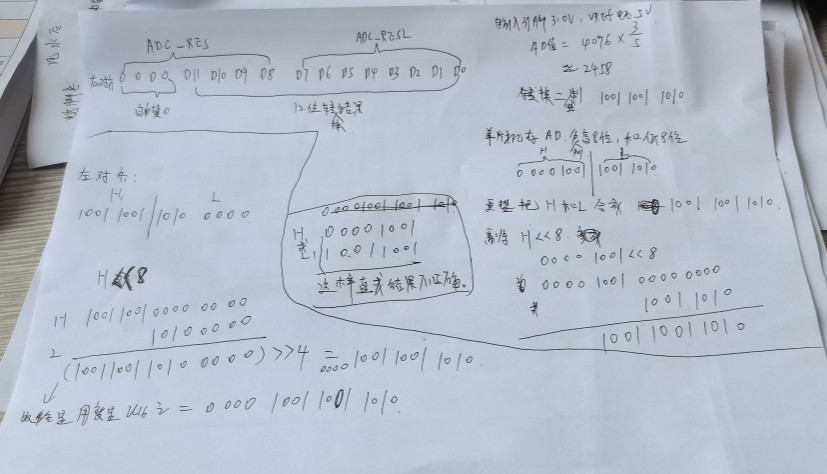 ADC_RES ADC_RESL
右对齐 0 0 0 0 D11 D10 D9 D8 D7 D6 D5 D4 D3 D2 D1 D0
自动填0 12位转换结果
左对齐:
H L
1001 1001 1010 0000
H<<8
H 1001 1001 0000 0000
L 1010 0000
(1001 1001 1010 0000)>>4 = 0000 1001 1001 1010.
用变量 U16 = 0000 1001 1001 1010.
0000 1001 1001 1010
H 0000 1001
或
L 1001 1001
这样直或结果不正确。
输入引脚3.0V, VRef 5V
AD值 = 4096 × 3/5
≈ 2458
转换二制 1001 1001 1010
单片机存AD 高8位,和低8位
H L
0000 1001 1001 1010
要想把H和L合成 1001 1001 1010.
H<<8.
0000 1001<<8
0000 1001 0000 0000
1001 1010
1001 1001 1010